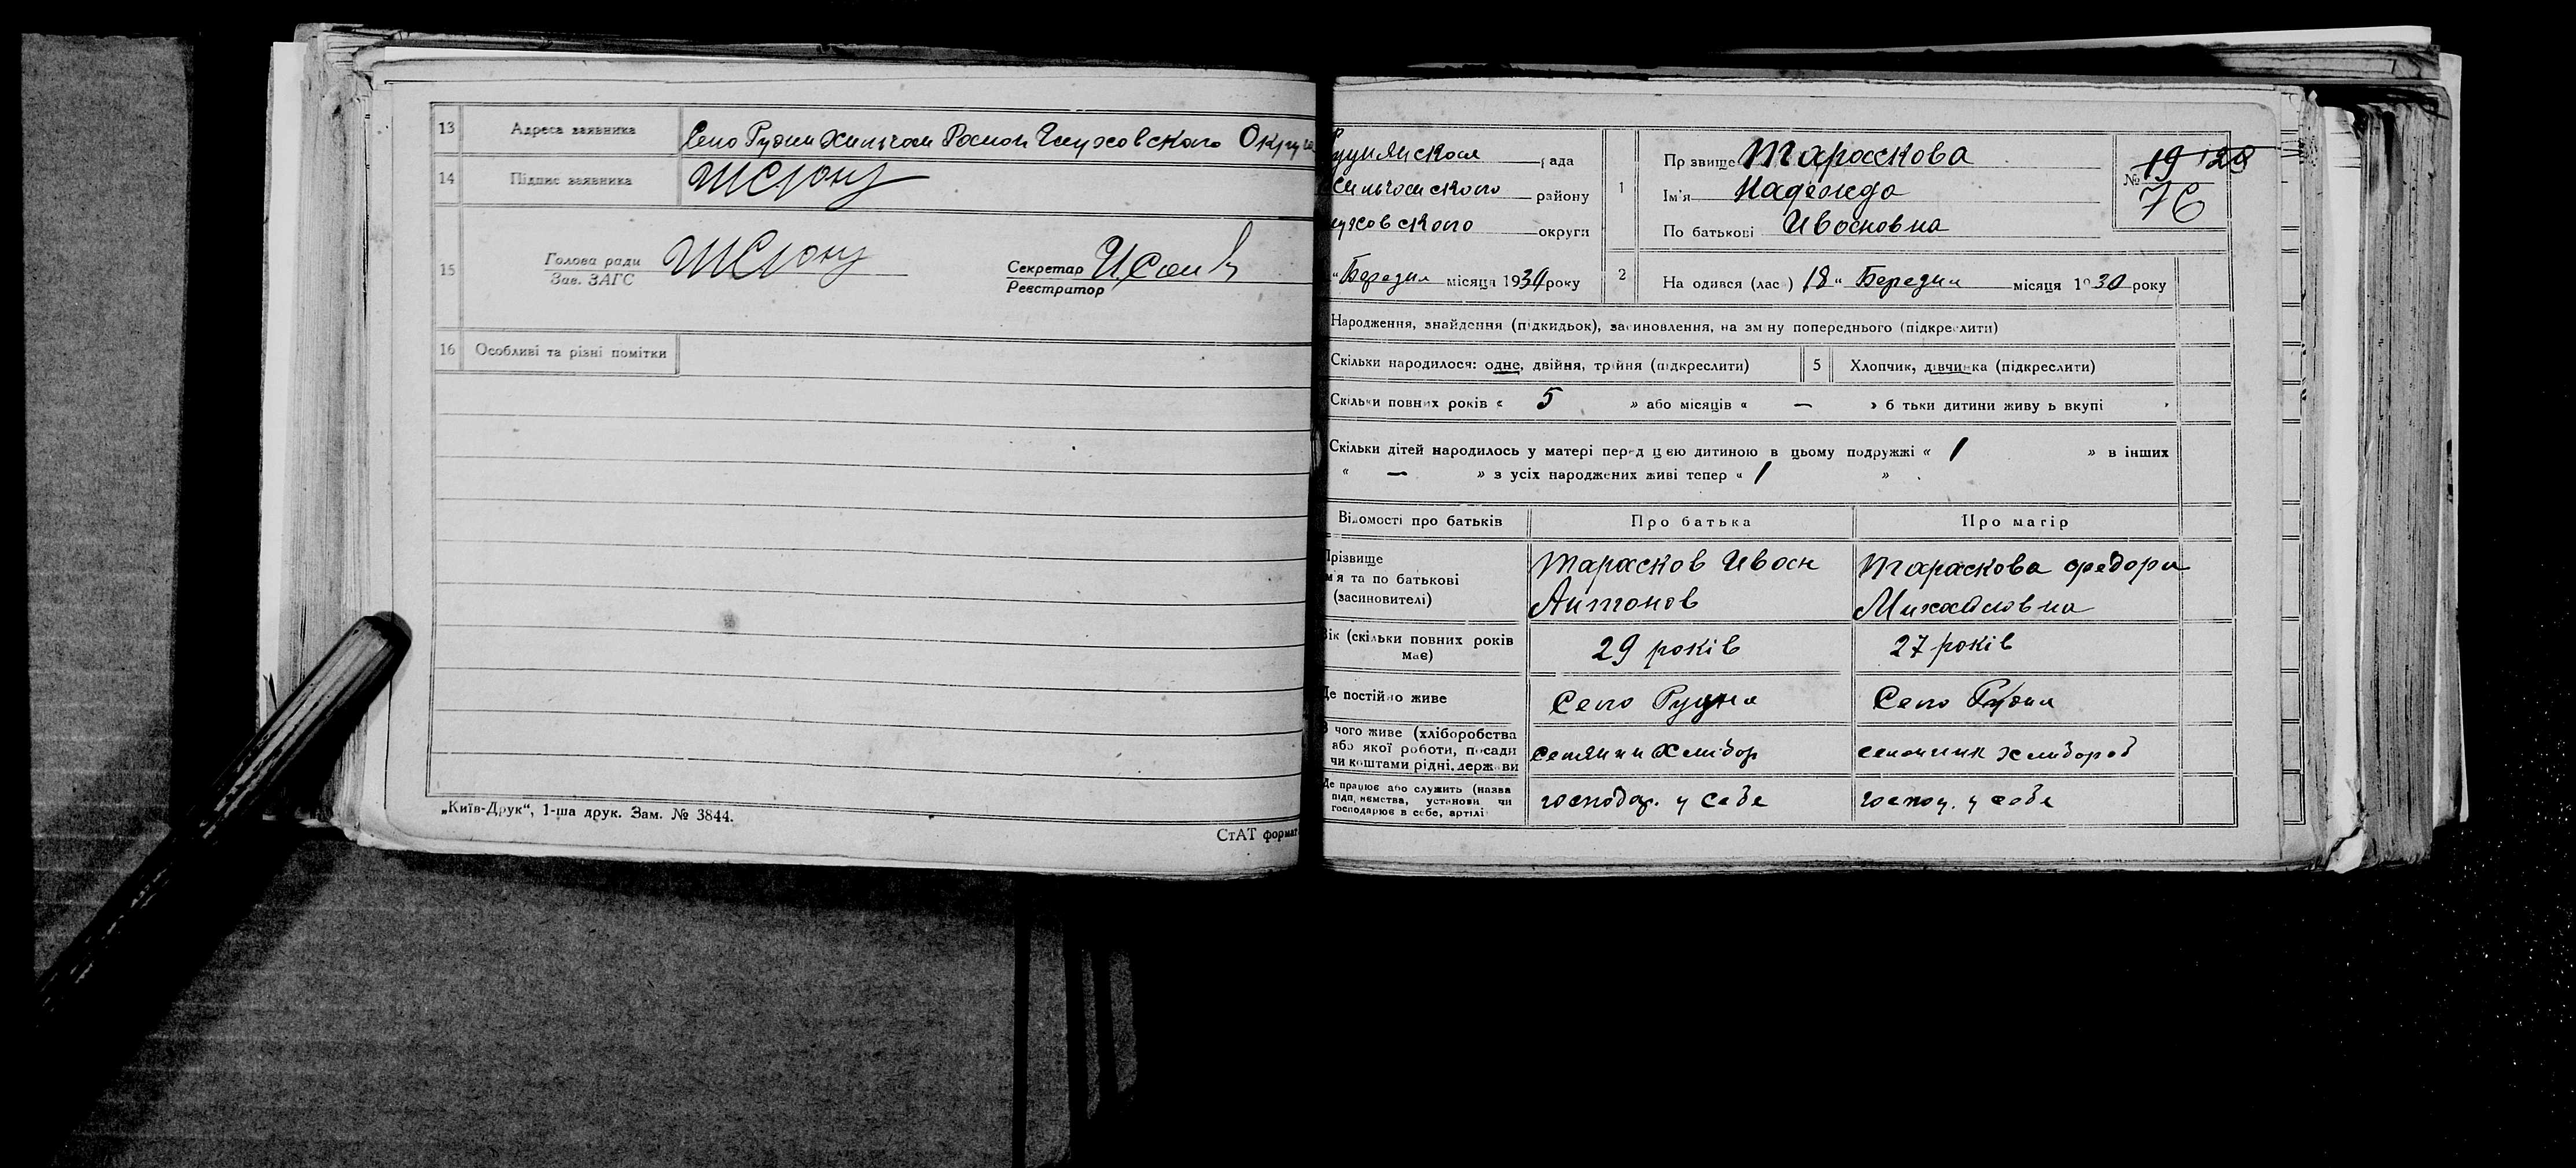 13 Адреса заявника Село Рудни Хильчан Району Глуховского Округа
14 Підпис заявника
15 Голова ради
Зав. ЗАГС
Секретар
Реєстратор
16 Особливі та різні помітки
„Київ-Друк“, 1-ша друк. Зам. № 3844.
СтАТ формат
Руднянская рада
района
уховского округи
1 Прізвище Тараскова
Ім'я Надежда
По батькові Ивановна
№ 19 / 28
76
„ Березня місяця 1930 року
2 На одився (лас ) 18 „ Березня місяця 1930 року
Народження, знайдення (підкидьок), засиновлення, на зміну попереднього (підкреслити)
Скільки народилося: одне, двійня, трійня (підкреслити) 5 Хлопчик, дівчинка (підкреслити)
Скільки повних років « 5 » або місяців « — » б тьки дитини живу ь вкупі
Скільки дітей народилось у матері перед цією дитиною в цьому подружжі « 1 » в інших
« — » з усіх народжених живі тепер « 1 »
Відомості про батьків Про батька Про матір
Прізвище
м'я та по батькові
(засиновителі)
Тарасков Иван
Антонов
Тараскова Федори
Михайловна
Вік (скільки повних років
має)
29 років 27 років
Де постійно живе Село Рудня Село Рудни
З чого живе (хліборобства
або якої роботи, посади
чи коштами рідні, держави
селянин хлибор селянин хлибороб
Де працює або служить (назва
підп. ємства, установи чи
господарює в себе, артілі
господар. у себе господ. у себе